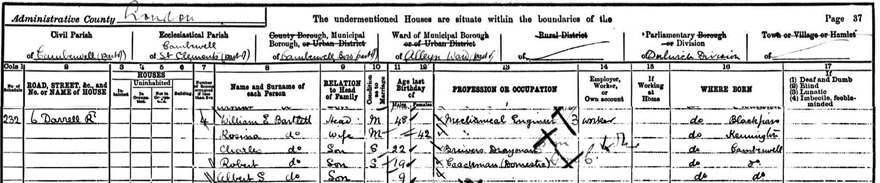 Administrative County London The undermentioned Houses are situate within the boundaries of the Page 37
Civil Parish Ecclesiastical Parish County Borough, Municipal Borough, or Urban District Ward of Municipal Borough or Urban District Rural District Parliamentary Borough or Division Town or Village or Hamlet
of Camberwell (part of) of Camberwell St Clements (part of) of Camberwell Boro (part of) of Alleyn Ward part of of of Dulwich Division of
Cols 1 2 3 4 5 6 7 8 9 10 11 12 13 14 15 16 17
No. of Schedule ROAD, STREET, &c., and No. or NAME of HOUSE HOUSES Uninhabited Building Name and Surname of each Person RELATION to Head of Family Condition as to Marriage Age last Birthday of Males Females PROFESSION OR OCCUPATION Employer, Worker, or Own account If Working at Home WHERE BORN If (1) Deaf and Dumb (2) Blind (3) Lunatic (4) Imbecile, feeble-minded
232 6 Darrell Rd 1 William E Bartlett Head M 48 Mechanical Engineer worker do Blackfriars
Rosina do Wife M 42 do Kennington
Charles do Son S 22 Brewers Drayman do Camberwell
Robert do Son S 19 Coachman (Domestic) do do
Albert S do Son 9 do do